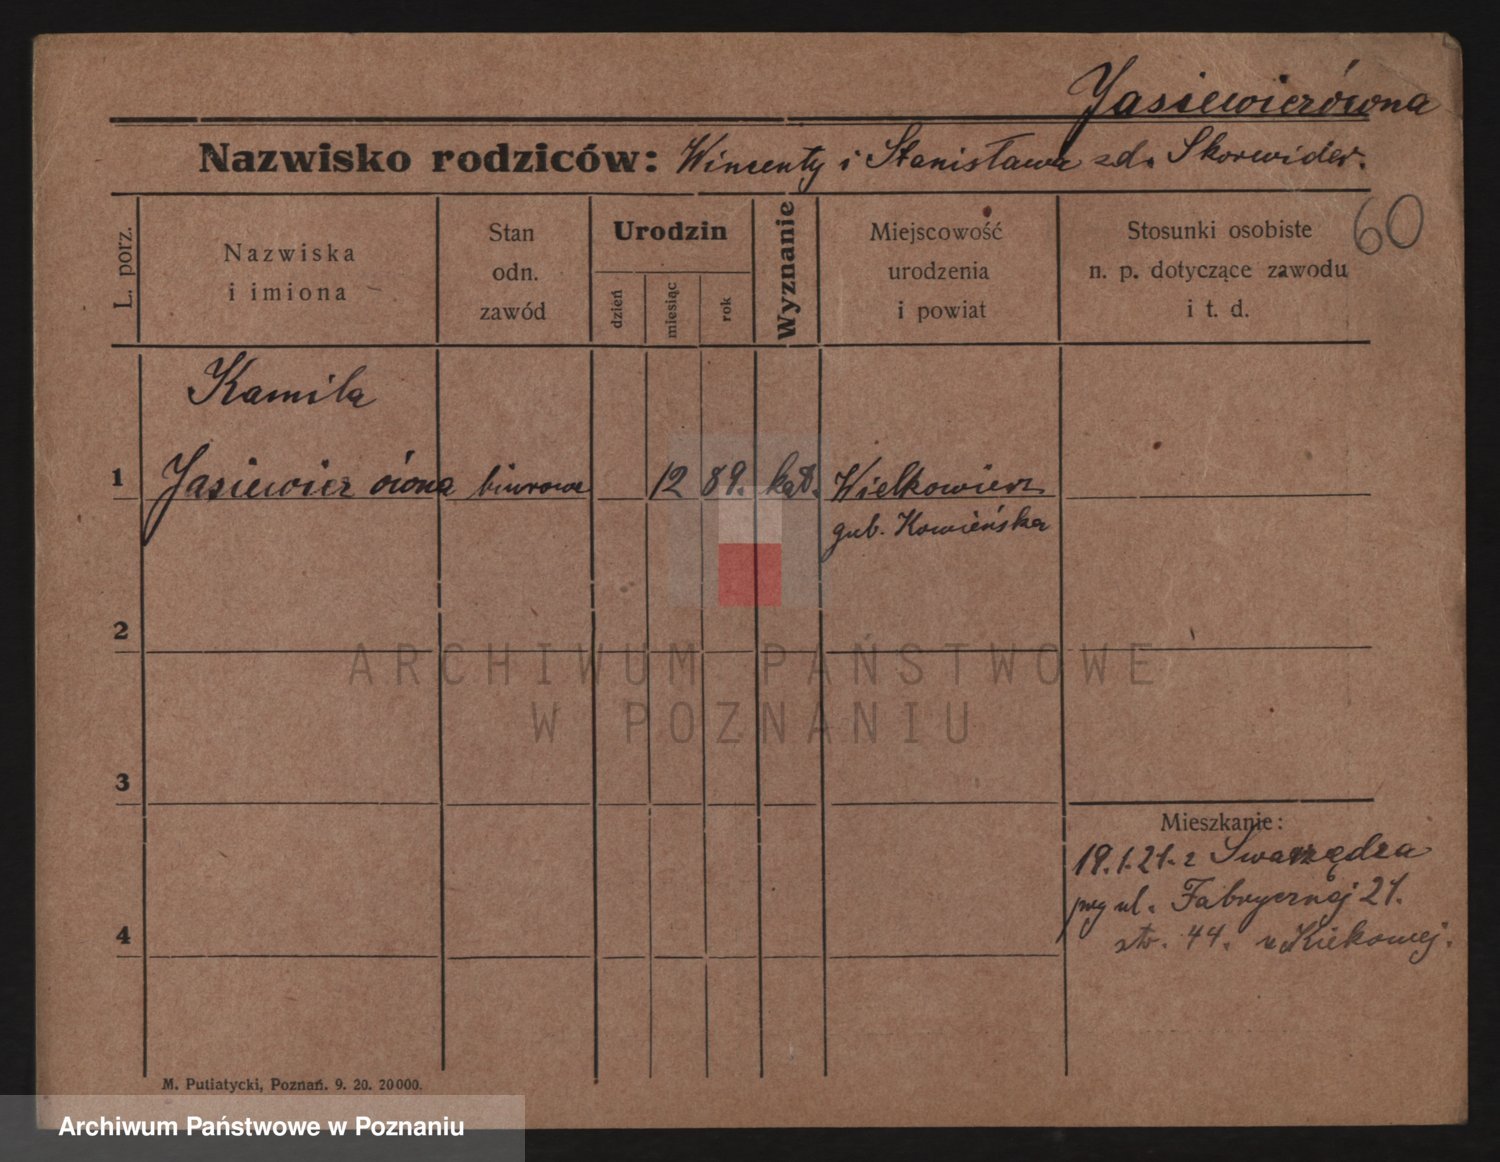 Jasiewiczówna
Nazwisko rodziców: Wincenty i Stanisława zd. Skorwider.
60
L. porz.
Nazwiska
i imiona
Stan
odn.
zawód
Urodzin
dzień
miesiąc
rok
Wyznanie
Miejscowość
urodzenia
i powiat
Stosunki osobiste
n. p. dotyczące zawodu
i t. d.
Kamila
1 Jasiewiczówna biurowa 12 89. kat. Wielkowierz
gub. Kowieńska
2
ARCHIWUM PAŃSTWOWE
W POZNANIU
3
Mieszkanie:
19.1.21. z Swarzędza
przy ul. Fabrycznej 21.
str. 44. u Kiekowej.
4
M. Putiatycki, Poznań. 9. 20. 20000.
Archiwum Państwowe w Poznaniu